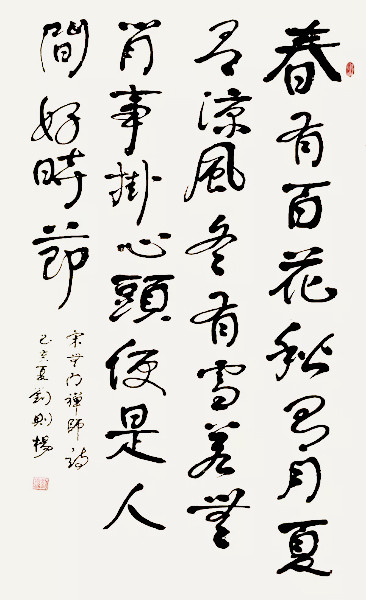 春有百花秋有月夏
有涼風冬有雪若無
閒事掛心頭便是人
間好時節
宋無門禪師詩
己亥夏劉則楊